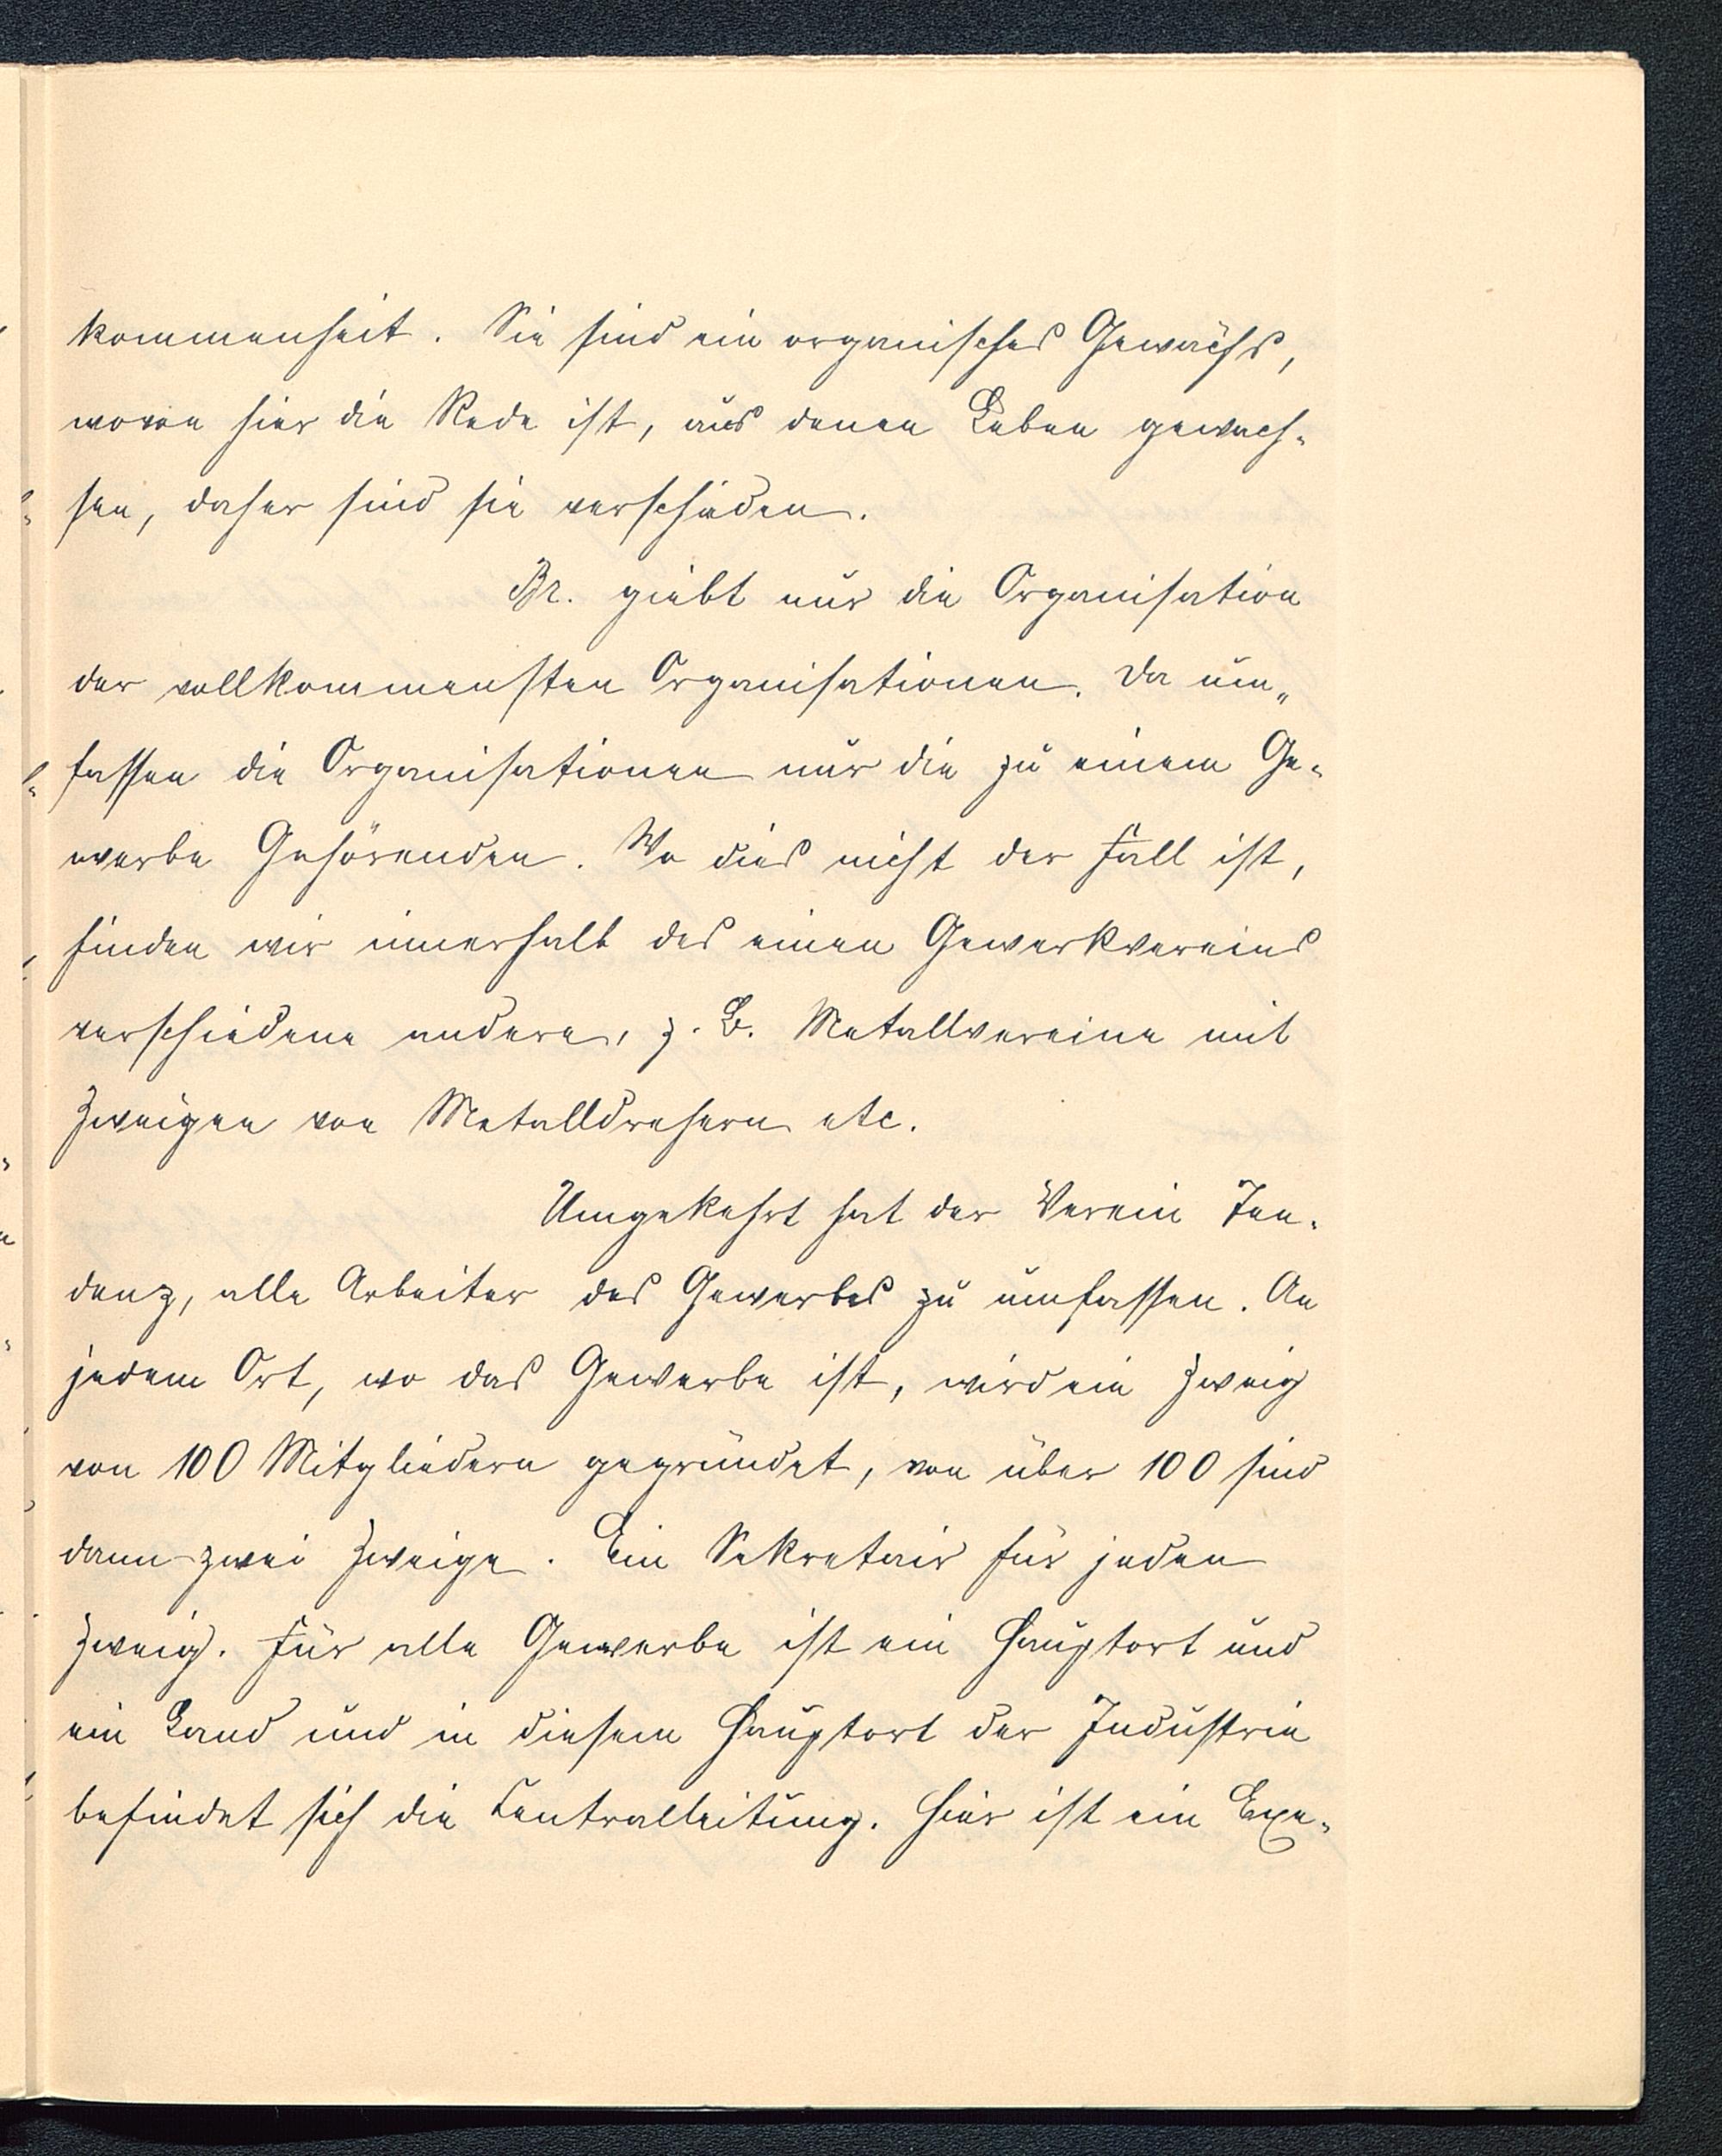 kommenheit. Sie sind ein organisches Gewächs,
wovon hier die Rede ist, aus denen Leben gewach-
sen, daher sind sie verschieden.
Br. giebt nur die Organisation
der vollkommensten Organisationen. Da um-
fassen die Organisationen nur die zu einem Ge-
werbe Gehörenden. Wo dies nicht der Fall ist,
finden wir innerhalb des einen Gewerkvereins
verschiedene andere, z. B. Metallvereine mit
Zweigen von Metalldrehern etc.
Umgekehrt hat der Verein Ten-
denz, alle Arbeiter des Gewerbes zu umfassen. An
jedem Ort, wo das Gewerbe ist, wird ein Zweig
von 100 Mitgliedern gegründet, von über 100 sind
dann zwei Zweige. Ein Sekretair für jeden
Zweig. Für alle Gewerbe ist ein Hauptort und
ein Land und in diesem Hauptort der Industrie
befindet sich die Centralleitung. Hier ist ein Exe-